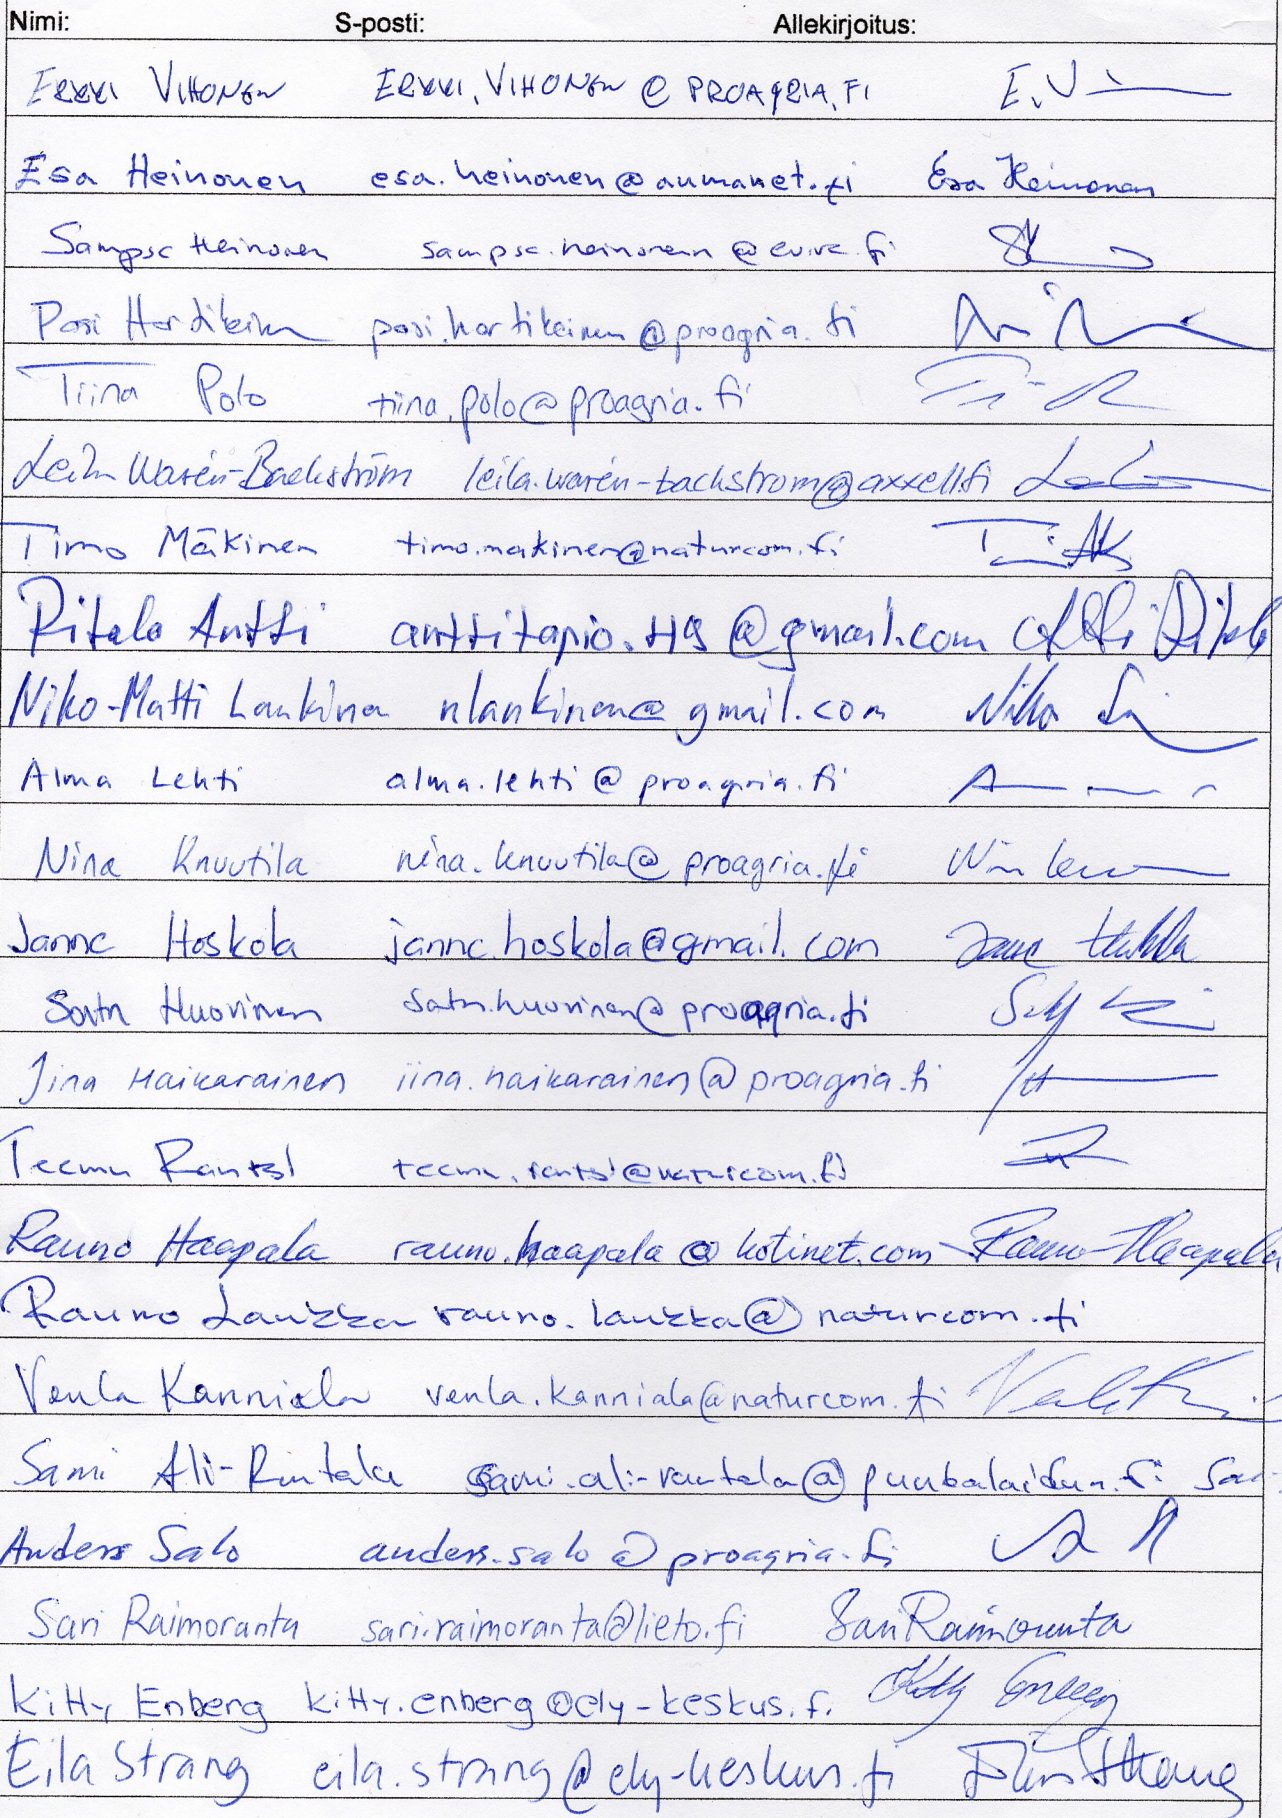 Nimi: S-posti: Allekirjoitus:
ERKKI VIHONEN ERKKI.VIHONEN@PROAGRIA.FI E.V
Esa Heinonen esa.heinonen@aumanet.fi Esa Heinonen
Sampsa Heinonen sampsa.heinonen@evira.fi
Pasi Hartikainen pasi.hartikainen@proagria.fi
Tiina Polo tiina.polo@proagria.fi
Leila Warén-Backström leila.warén-backstrom@axxell.fi
Timo Mäkinen timo.makinen@naturcom.fi
Ritala Antti anttitapio.119@gmail.com Antti Ritala
Niko-Matti Lankinen nlankinen@gmail.com Niko
Alma Lehti alma.lehti@proagria.fi
Nina Knuutila nina.knuutila@proagria.fi
Janne Hoskola janne.hoskola@gmail.com Janne Hoskola
Satu Huovinen satu.huovinen@proagria.fi
Iina Haikarainen iina.haikarainen@proagria.fi
Teemu Rantsi teemu.rantsi@naturcom.fi
Rauno Haapala rauno.haapala@kotinet.com Rauno Haapala
Rauno Laukka rauno.laukka@naturcom.fi
Venla Kanniala venla.kanniala@naturcom.fi
Sami Ali-Rantala sami.ali-rantala@punkalaidun.fi
Anders Salo anders.salo@proagria.fi
Sari Raimoranta sari.raimoranta@lieto.fi Sari Raimoranta
Kitty Enberg kitty.enberg@ely-keskus.fi Kitty Enberg
Eila Strang eila.strang@ely-keskus.fi Eila Strang